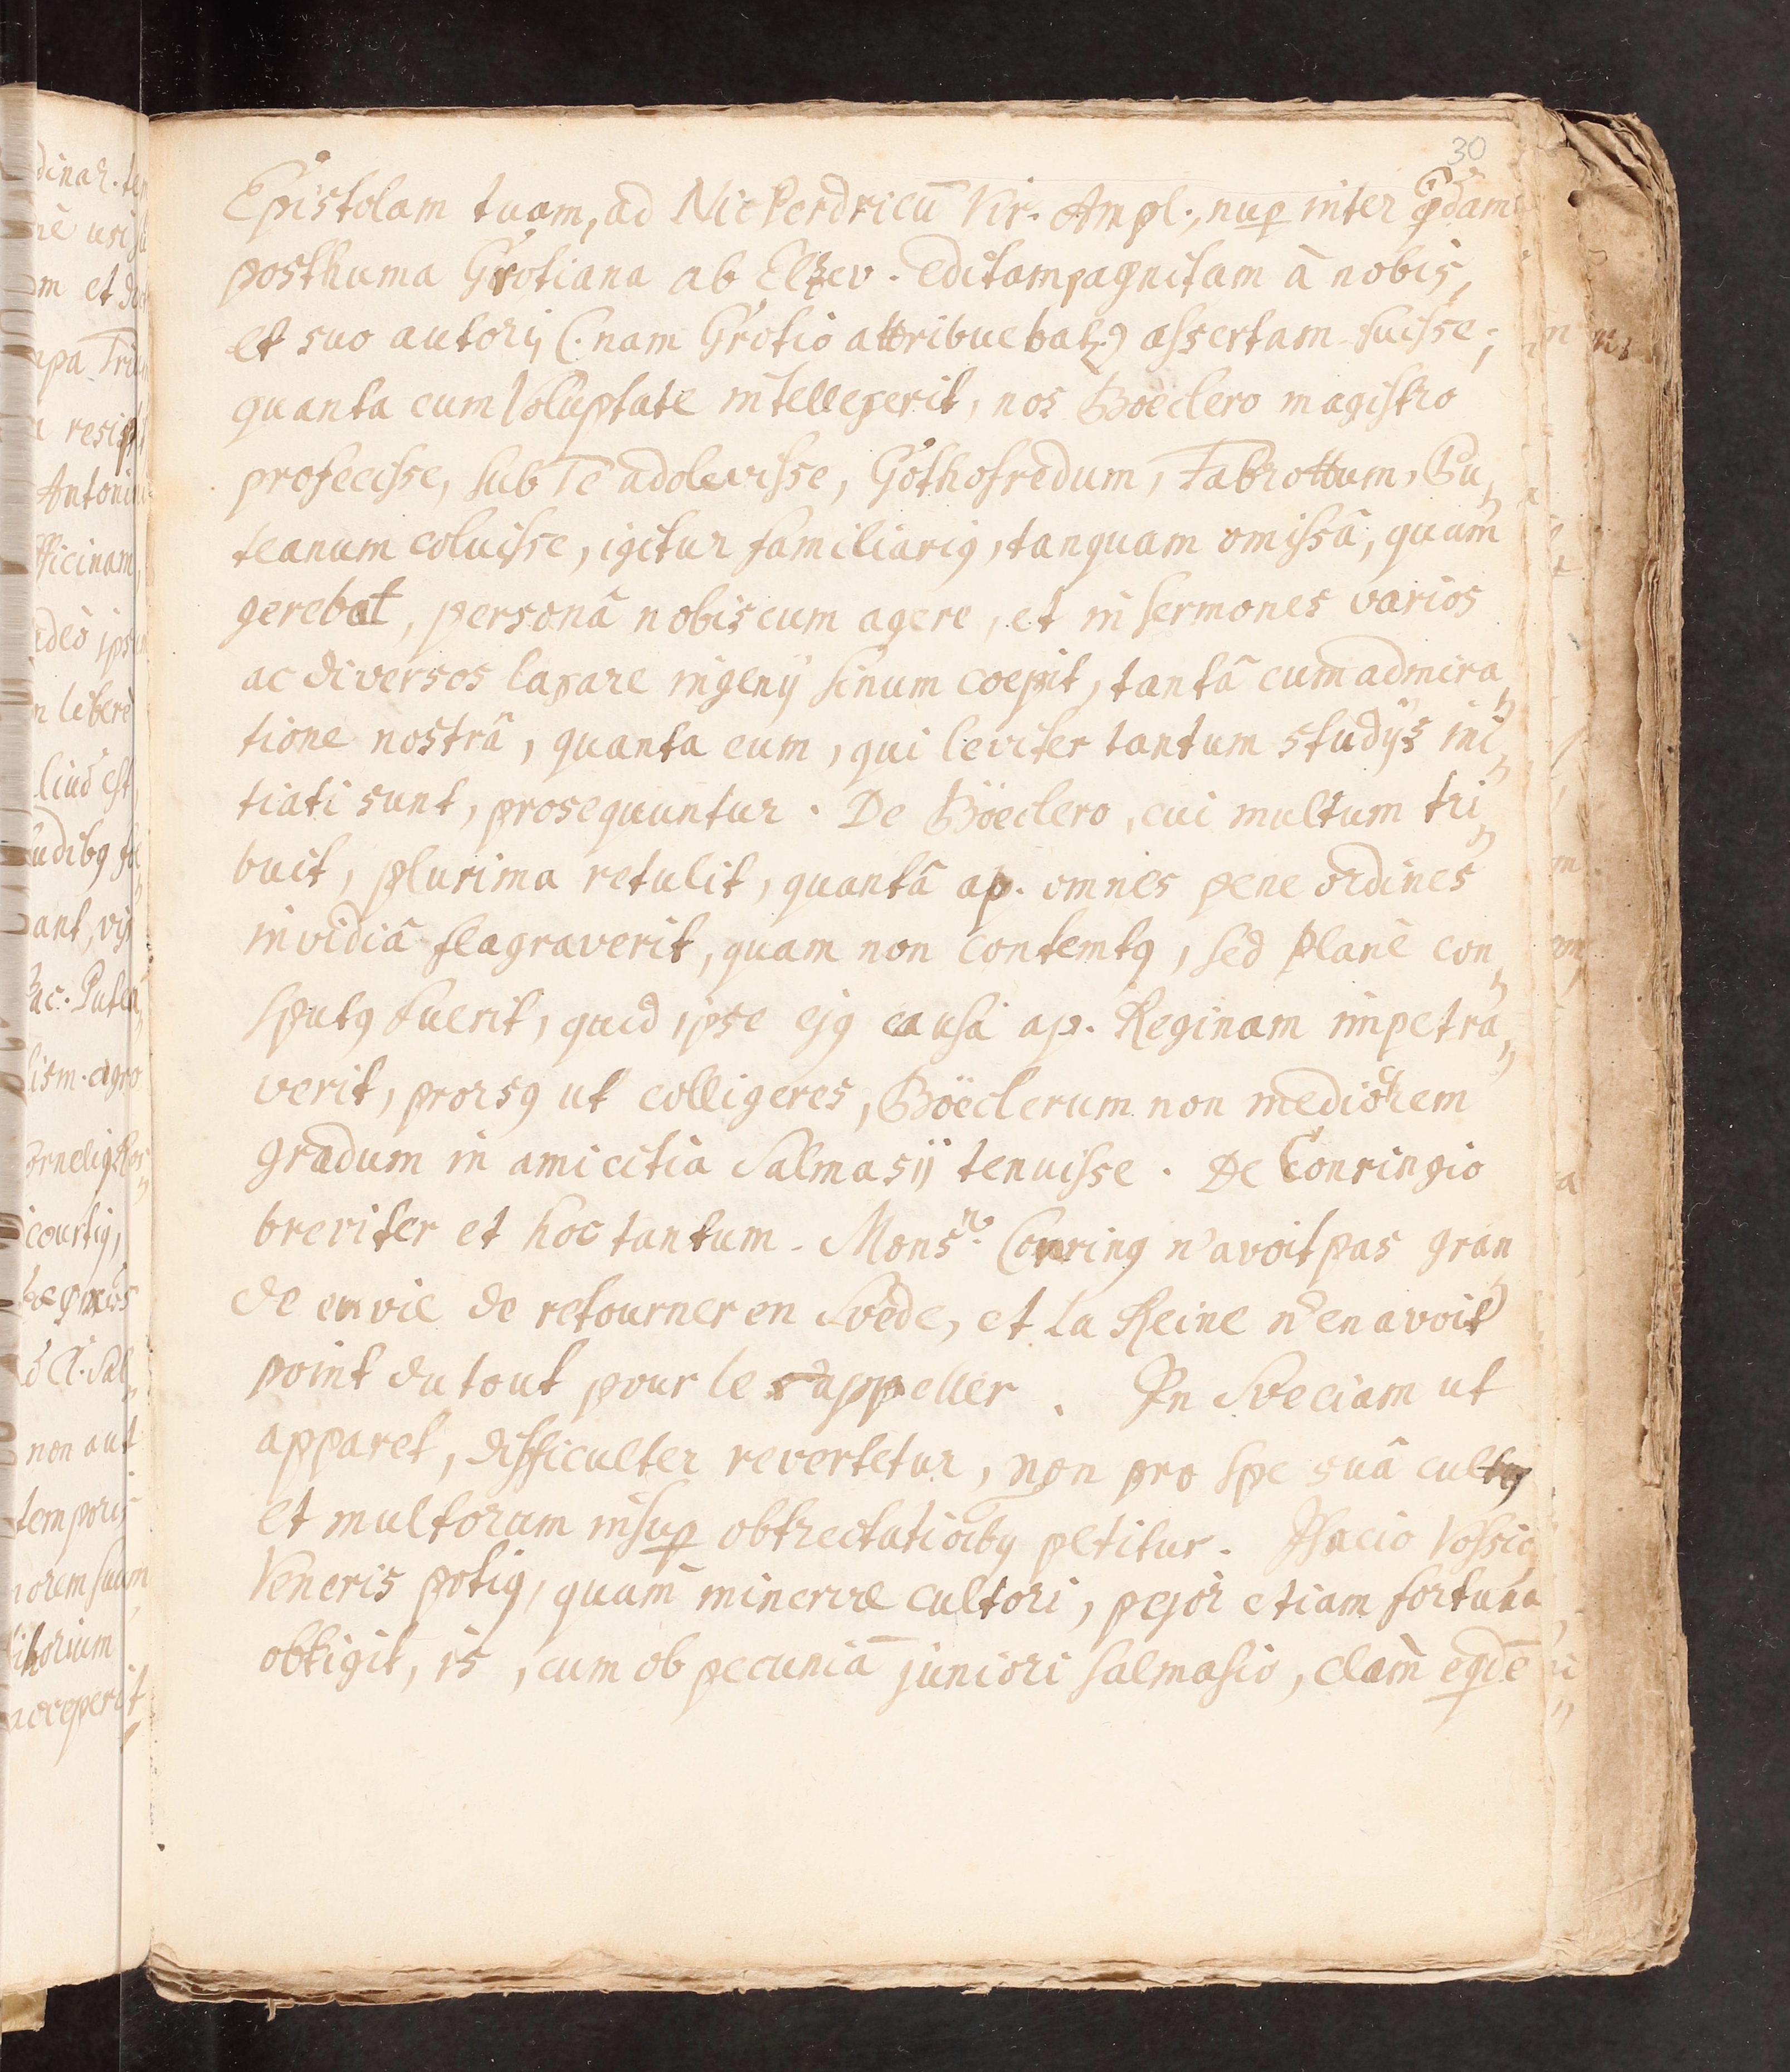 30
Epistolam tuam, ad Nic Perdricū Vir. Ampl., nuꝑ inter qdam
posthuma Grotiana ab Elzev. Editam, agnitam à nobis,
et suo autori, (nam Grotio attribuebat᷑) assertam fuisse;
quanta cum Voluptate intellexerit, nos Boëclero magistro
profecisse, sub Te adolevisse, Gothofredum, Fabrottum, Pu„
teanum coluisse, igitur familiariꝰ, tanquam omissâ, quam
gerebat, personâ nobiscum agere, et in sermones varios
ac diversos laxare ingenij sinum coepit, tantâ cum admira„
tione nostrâ, quanta eum, qui leviter tantum studijs ini„
tiati sunt, prosequuntur. De Böeclero, cui multum tri„
buit, plurima retulit, quantâ ap. omnes pene ordines
invidiâ flagraverit, quam non contemtꝰ, sed planè con„
sputꝰ fuerit, quid ipse ejꝰ causâ ap. Reginam impetra„
verit, prorsꝰ ut colligeres, Böeclerum non mediocrem
gradum in amicitia Salmasij tenuisse. De Conringio
breviter et hoc tantum. Monsr. Conring n'avoit pas gran„
de envie de retourner en Svède, et la Reine n'en avoit
point du tout pour le rappeller. In Sveciam ut
apparet, difficulter revertetur, non pro spe suâ cultꝰ
et multorum insuꝑ obtrectatioībꝰ petitur. Isacio Vossio
Veneris potiꝰ, quam minervæ cultori, pejor etiam fortuna
obtigit, is, cum ob pecuniā juniori Salmasio, clam eqdē